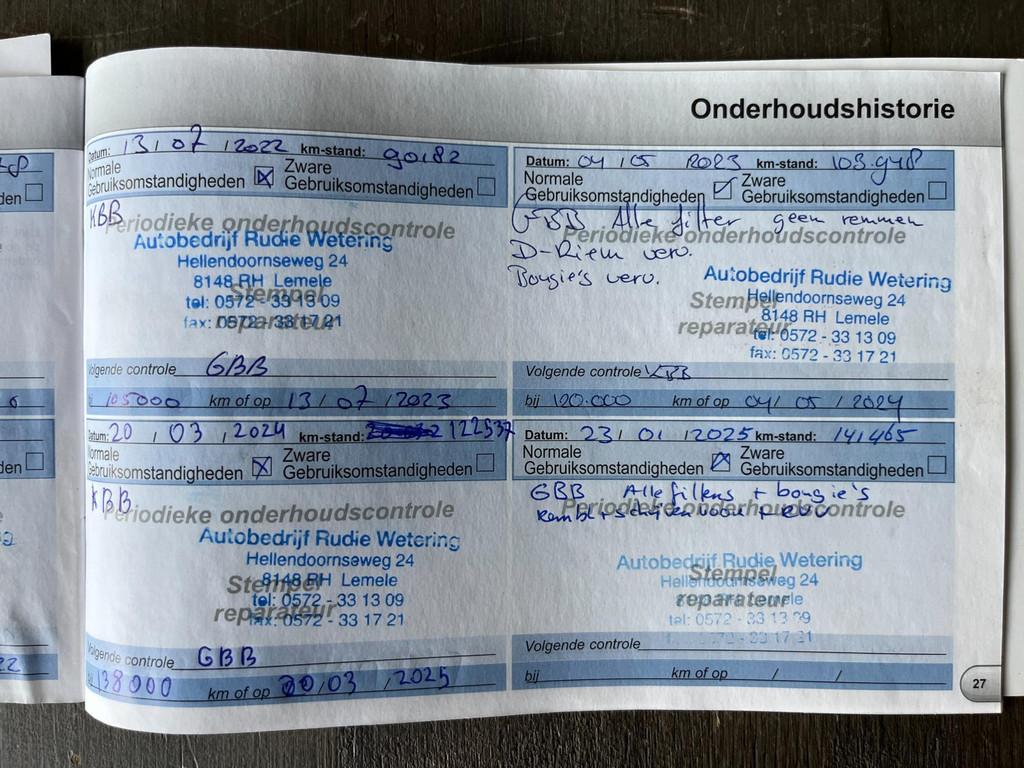 Onderhoudshistorie
Datum: 13 / 07 / 2022 km-stand: 90182
Normale Gebruiksomstandigheden ☒ Zware Gebruiksomstandigheden ☐
KBB
Periodieke onderhoudscontrole
Autobedrijf Rudie Wetering
Hellendoornseweg 24
8148 RH Lemele
Stempel
tel: 0572 - 33 13 09
reparateur
fax: 0572 - 33 17 21
Volgende controle GBB
bij 105000 km of op 13 / 07 / 2023
Datum: 04 / 05 / 2023 km-stand: 103.948
Normale Gebruiksomstandigheden ☑ Zware Gebruiksomstandigheden ☐
GBB Alle filter geen remmen
Periodieke onderhoudscontrole
D-Riem verv.
Bougie's verv.
Autobedrijf Rudie Wetering
Stempel
Hellendoornseweg 24
8148 RH Lemele
reparateur
tel: 0572 - 33 13 09
fax: 0572 - 33 17 21
Volgende controle KBB
bij 120.000 km of op 04 / 05 / 2024
Datum: 20 / 03 / 2024 km-stand: 122537
Normale Gebruiksomstandigheden ☒ Zware Gebruiksomstandigheden ☐
KBB
Periodieke onderhoudscontrole
Autobedrijf Rudie Wetering
Hellendoornseweg 24
Stempel
8148 RH Lemele
reparateur
tel: 0572 - 33 13 09
fax: 0572 - 33 17 21
Volgende controle GBB
138000 km of op 20 / 03 / 2025
Datum: 23 / 01 / 2025 km-stand: 141465
Normale Gebruiksomstandigheden ☑ Zware Gebruiksomstandigheden ☐
GBB Alle filters + bougie's
Periodieke onderhoudscontrole
+ schijven voor +
Autobedrijf Rudie Wetering
Stempel
Hellendoornseweg 24
reparateur
8148 RH Lemele
tel: 0572 - 33 13 09
0572 - 33 17 21
Volgende controle
bij km of op / /
27